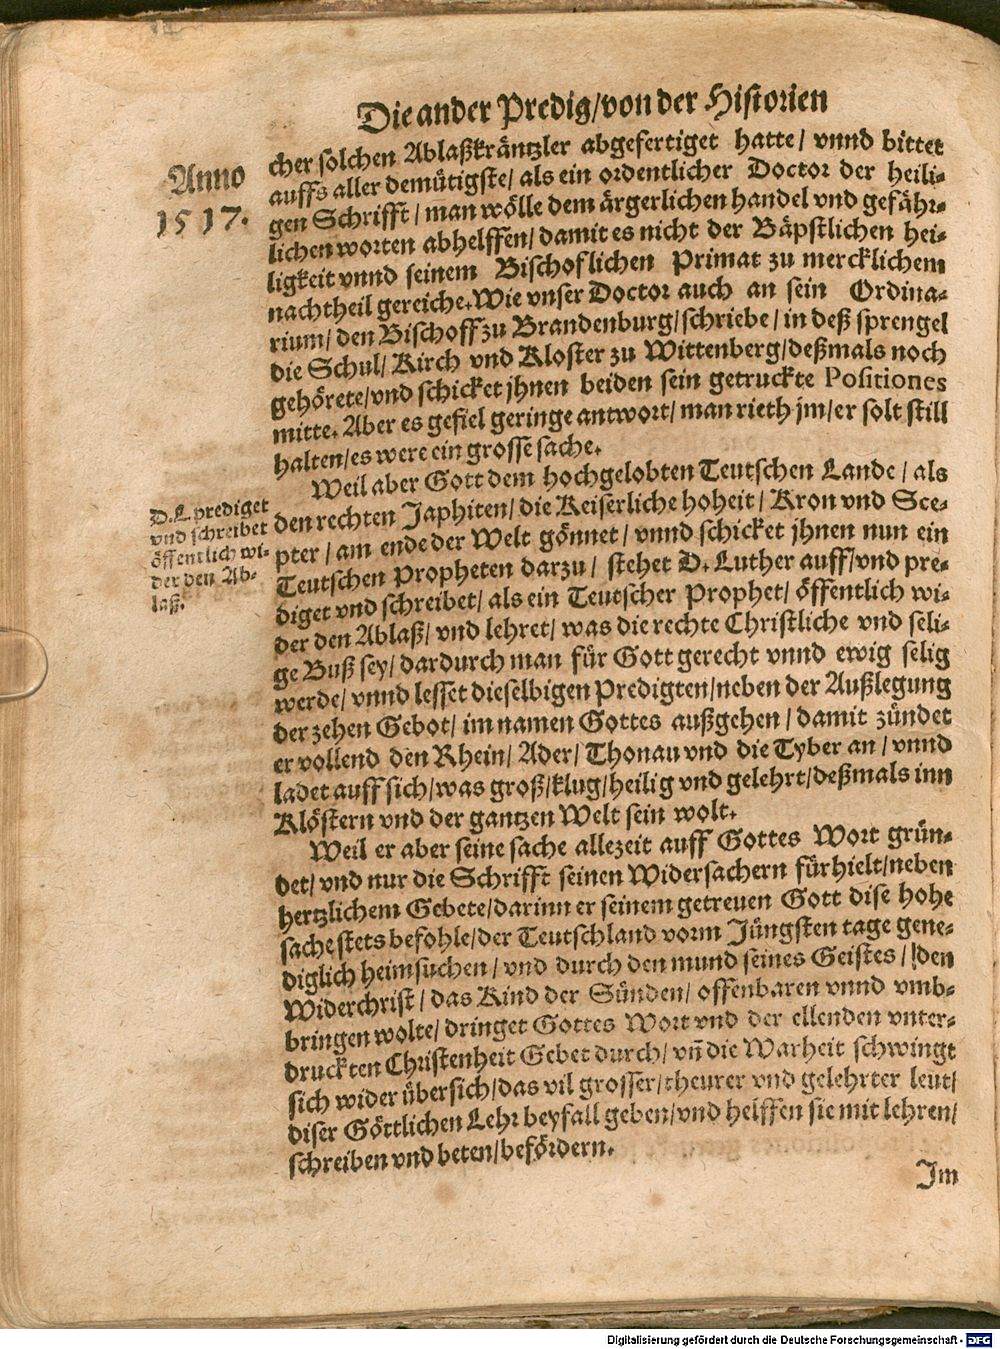 Die ander Predig/von der Historien
Anno
1517.
cher solchen Ablaßkräntzler abgefertiget hatte/ vnnd bittet
auffs aller demütigste/ als ein ordentlicher Doctor der heili-
gen Schrifft/ man wölle dem ärgerlichen handel vnd gefähr-
lichen worten abhelffen/ damit es nicht der Bäpstlichen hei-
ligkeit vnnd seinem Bischoflichen Primat zu mercklichem
nachtheil gereiche. Wie vnser Doctor auch an sein Ordina-
rium/ den Bischoff zu Brandenburg/ schriebe/ in deß sprengel
die Schul/ Kirch vnd Kloster zu Wittenberg/ deßmals noch
gehörete/ vnd schicket jhnen beiden sein getruckte Positiones
mitte. Aber es gefiel geringe antwort/ man rieth jm/ er solt still
halten/ es were ein grosse sache.
D. L. prediget
vnd schreibet
öffentlich wi-
der den Ab-
laß.
Weil aber Gott dem hochgelobten Teutschen Lande/ als
den rechten Japhiten/ die Keiserliche hoheit/ Kron vnd Sce-
pter/ am ende der Welt gönnet/ vnnd schicket jhnen nun ein
Teutschen Propheten darzu/ stehet D. Luther auff/ vnd pre-
diget vnd schreibet/ als ein Teutscher Prophet/ öffentlich wi-
der den Ablaß/ vnd lehret/ was die rechte Christliche vnd seli-
ge Buß sey/ dardurch man für Gott gerecht vnnd ewig selig
werde/ vnnd lesset dieselbigen Predigten/ neben der Außlegung
der zehen Gebot/ im namen Gottes außgehen/ damit zündet
er vollend den Rhein/ Ader/ Thonau vnd die Tyber an/ vnnd
ladet auff sich/ was groß/ klug/ heilig vnd gelehrt/ deßmals inn
Klöstern vnd der gantzen Welt sein wolt.
Weil er aber seine sache allezeit auff Gottes Wort grün-
det/ vnd nur die Schrifft seinen Widersachern fürhielt/ neben
hertzlichem Gebete/ darinn er seinem getreuen Gott dise hohe
sache stets befohle/ der Teutschland vorm Jüngsten tage gene-
diglich heimsuchen/ vnd durch den mund seines Geistes/ den
Widerchrist/ das Kind der Sünden/ offenbaren vnnd vmb-
bringen wolte/ dringet Gottes Wort vnd der ellenden vnter-
druckten Christenheit Gebet durch/ vñ die Warheit schwingt
sich wider übersich/ das vil grosser/ theurer vnd gelehrter leut/
diser Göttlichen Lehr beyfall geben/ vnd helffen sie mit lehren/
schreiben vnd beten/ befördern.
Im
Digitalisierung gefördert durch die Deutsche Forschungsgemeinschaft - DFG